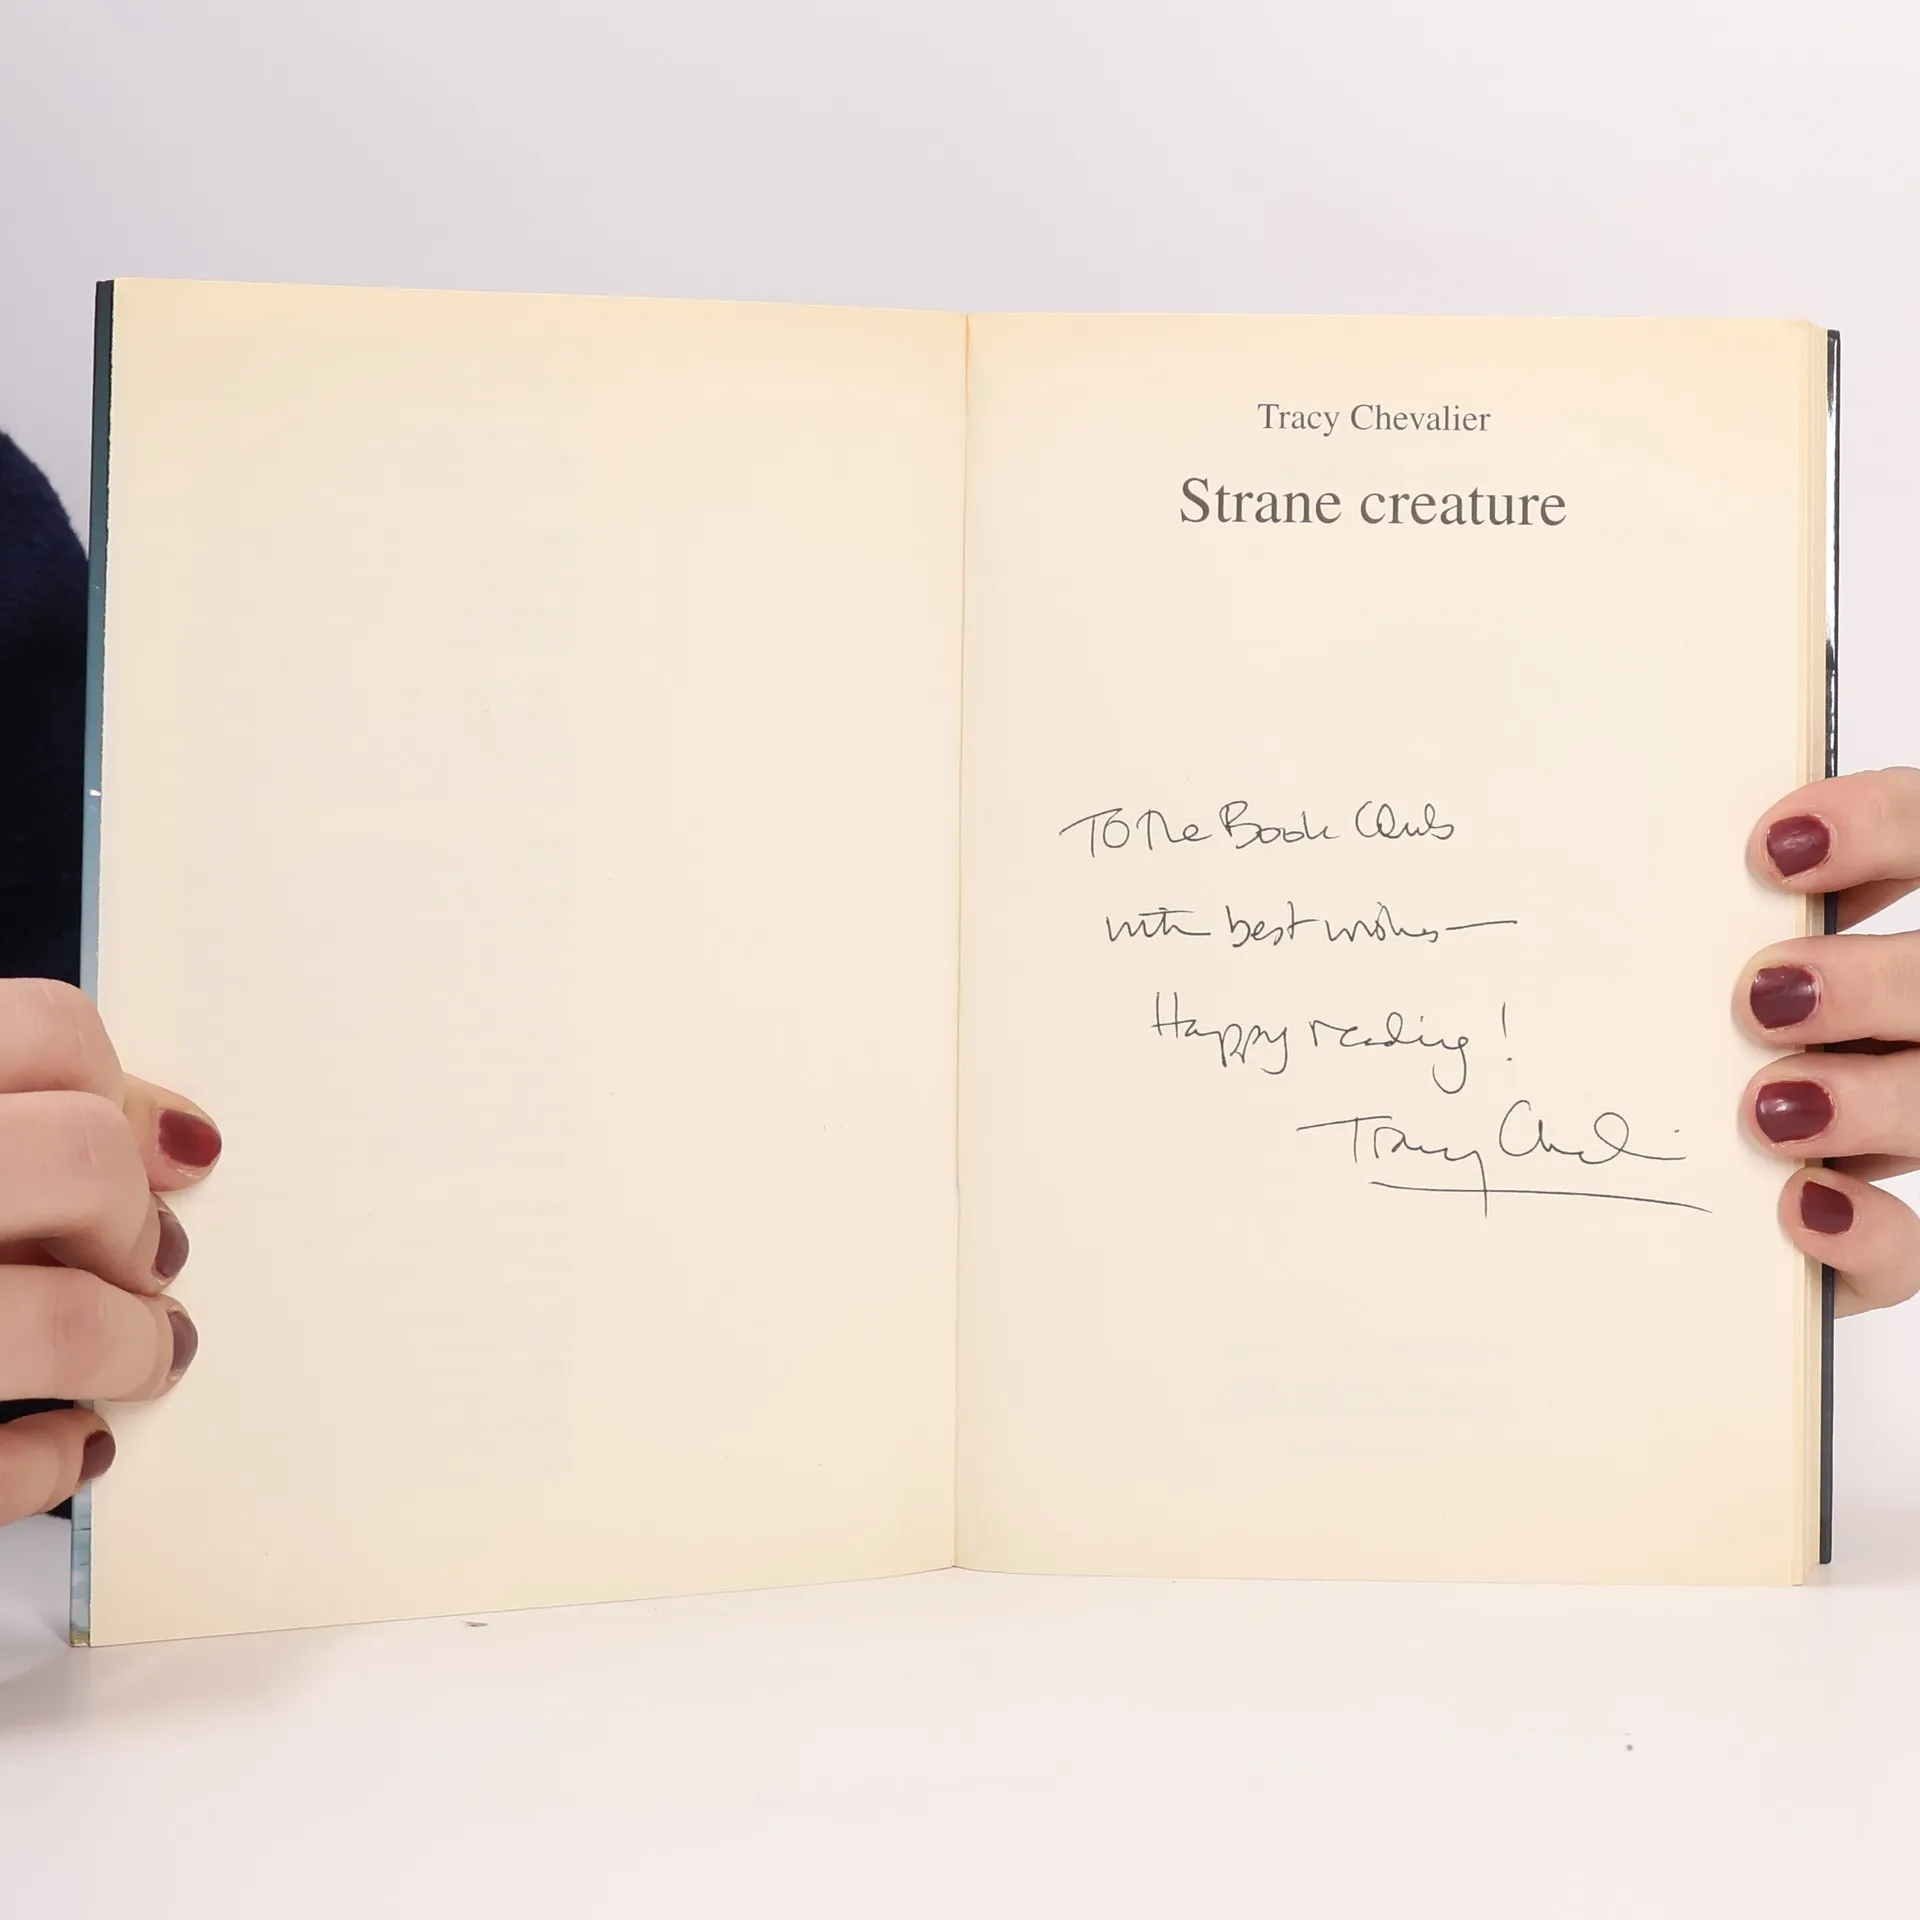 Tracy Chevalier
Strane creature
To the Book Club
with best wishes—
Happy reading!
Tracy Chevalier